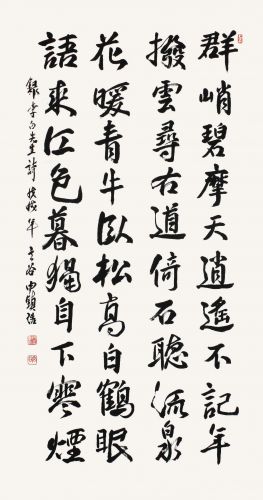 群峭碧摩天逍遙不記年
撥雲尋古道倚石聽流泉
花暖青牛臥松高白鶴眠
語來江色暮獨自下寒煙
錄李白先生詩